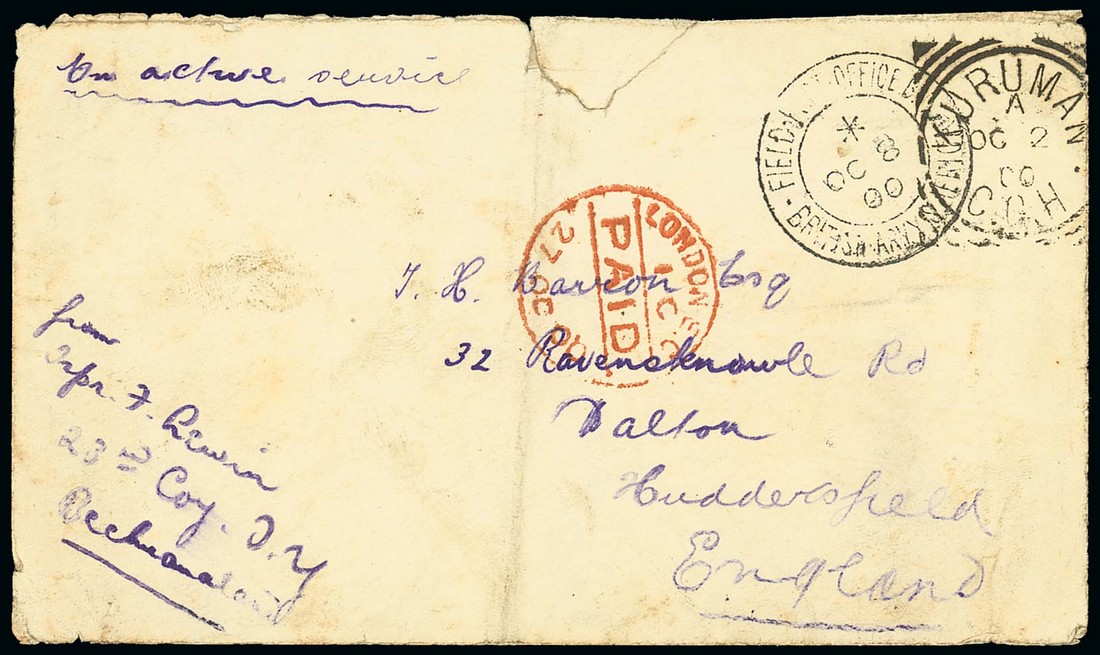 On active service
FIELD POST OFFICE
BRITISH ARMY S. AFRICA
8
OC
00
KURUMAN
A
OC 2
00
C.G.H
LONDON E.C
1 C
PAID
27 OC 00
J. H. Barron Esq
32 Ravensknowle Rd
Dalton
Huddersfield
England
from
Trpr. F. Lewin
23rd Coy. I.Y
Bechuanaland